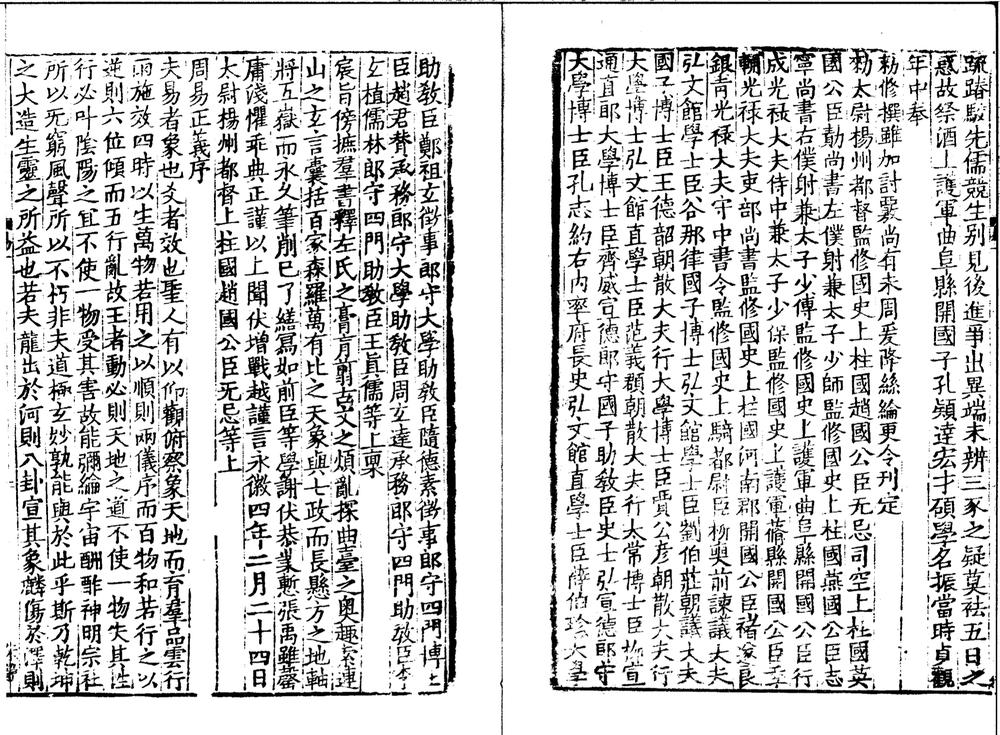 疏踳駮先儒競生別見後進爭出異端未辨三豕之疑莫袪五日之
惑故祭酒上護軍曲阜縣開國子孔穎達宏才碩學名振當時貞觀
年中奉
勑修撰雖加討覈尚有未周爰降絲綸更令刊定
勑太尉楊州都督監修國史上柱國趙國公臣无忌司空上柱國英
國公臣勣尚書左僕射兼太子少師監修國史上柱國燕國公臣志
寧尚書右僕射兼太子少傅監修國史上護軍曲阜縣開國公臣行
成光祿大夫侍中兼太子少保監修國史上護軍蓨縣開國公臣季
輔光祿大夫吏部尚書監修國史上柱國河南郡開國公臣褚遂良
銀青光祿大夫守中書令監修國史上騎都尉臣柳奭前諫議大夫
弘文館學士臣谷那律國子博士弘文館學士臣劉伯莊朝議大夫
國子博士臣王德韶朝散大夫行大學博士臣賈公彥朝散大夫行
大學博士弘文館直學士臣范義頵朝散大夫行太常博士臣柳宣
通直郎大學博士臣齊威宣德郎守國子助敎臣史士弘宣德郎守
大學博士臣孔志約右內率府長史弘文館直學士臣薛伯珍大學
助敎臣鄭祖玄徵事郎守大學助敎臣隨德素徵事郎守四門博士
臣趙君贊承務郎守大學助敎臣周玄達承務郎守四門助敎臣李
玄植儒林郎守四門助敎臣王眞儒等上稟
宸旨傍摭羣書釋左氏之膏肓翦古文之煩亂探曲臺之奧趣索連
山之玄言囊括百家森羅萬有比之天象與七政而長懸方之地軸
將五嶽而永久筆削已了繕寫如前臣等學謝伏恭業慙張禹雖罄
庸淺懼乖典正謹以上聞伏增戰越謹言永徽四年二月二十四日
太尉揚州都督上柱國趙國公臣无忌等上
周易正義序
夫易者象也爻者效也聖人有以仰觀俯察象天地而育羣品雲行
雨施效四時以生萬物若用之以順則兩儀序而百物和若行之以
逆則六位傾而五行亂故王者動必則天地之道不使一物失其性
行必叶陰陽之宜不使一物受其害故能彌綸宇宙酬酢神明宗社
所以无窮風聲所以不朽非夫道極玄妙孰能與於此乎斯乃乾坤
之大造生靈之所益也若夫龍出於河則八卦宣其象麟傷於澤則